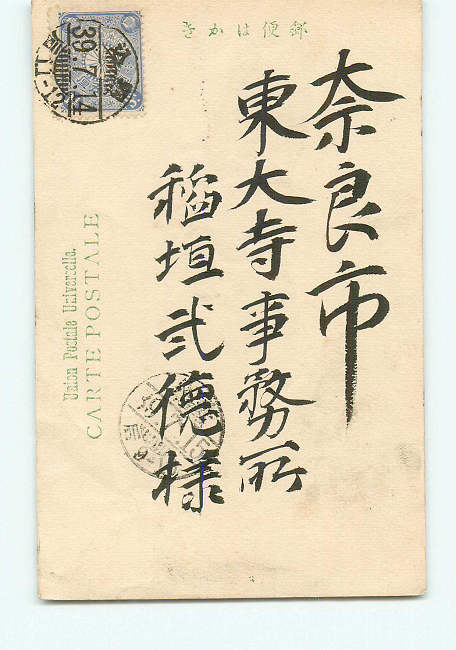 郵便はかき
奈良市
東大寺事務所
稲垣弐徳様
Union Postale Universelle.
CARTE POSTALE
39.7.4